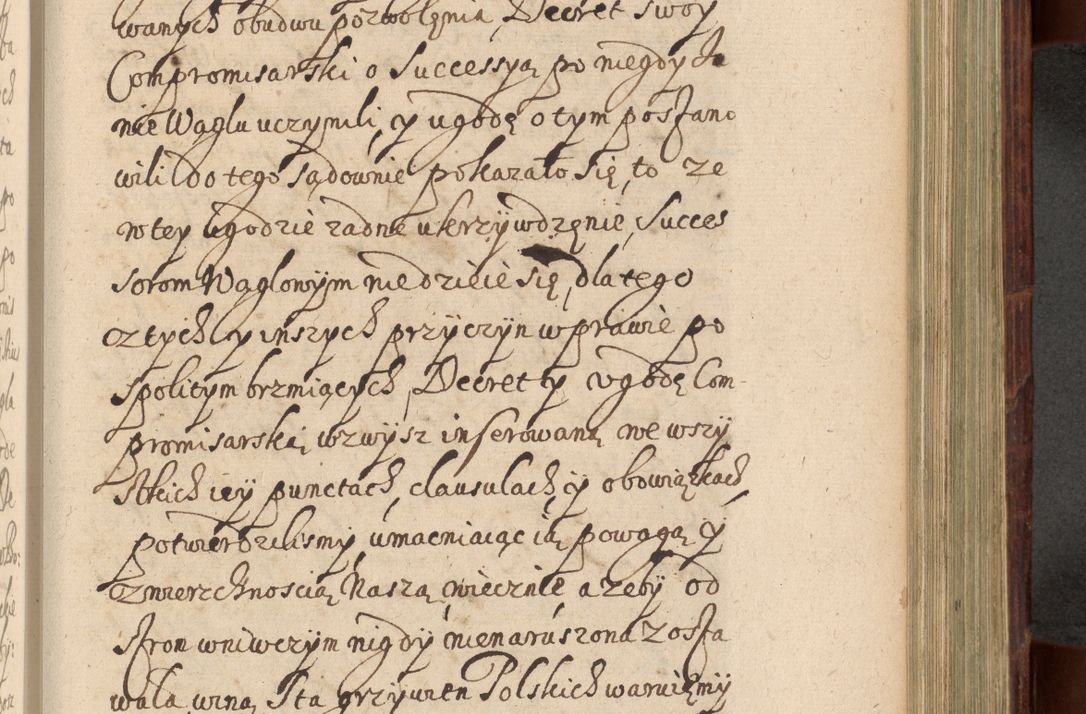 wanych obudwu pozwolenia Decret swoy
Compromisarski o Successyą po niegdy Ja
nie Wąglu uczynili, y ugodę o tym postano
wili do tego sądownie pokazało się, to ze
w tey ugodzie zadne ukrzywdzęnie, Succes
sorom Wąglowym nie dzieie się, dla tego
z tych y inszych przyczyn w prawie po
spolitym brzmiących, Decret ty ugodę Com-
promisarską wzwysz inserowaną we wszy
stkich iey punctach, clausulach, y obowiązkach,
potwierdzilismy, umacniaiąc ią powagą y
zwierzchnoscią Naszą wiecznie a zeby od
stron w niwczym nigdy nienaruszona zosta
wała, winą Sta grzywien Polskich waruięmy